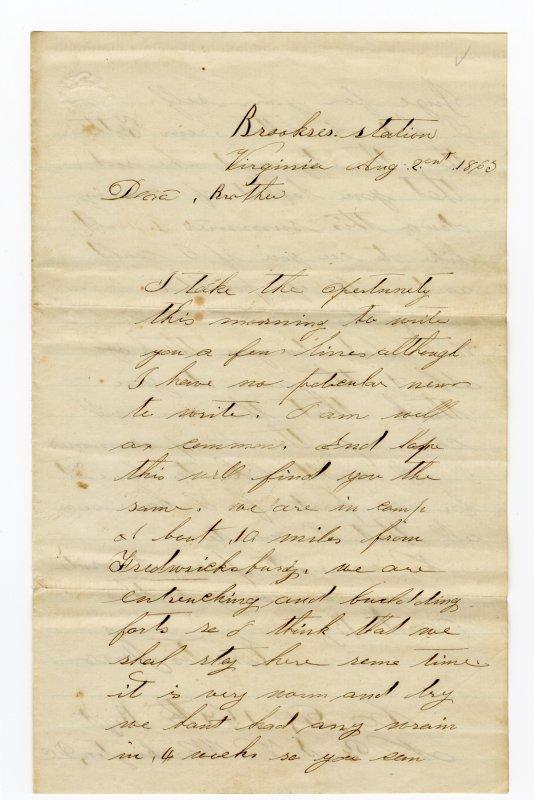 Brookses station
Virginia Aug. 2ent 1863
Dear, Brother
I take the opertunety
this morning to write
you a few lines although
I have no peticular news
to write. I am well
as common. And hope
this will find you the
same. we are in camp
a bout 10 miles from
Fredwricksburg. we are
entrenching and buildding
forts so I think that we
shal stay here some time
it is very worm and dry
we hant had any wrain
in, 4 weeks so you can